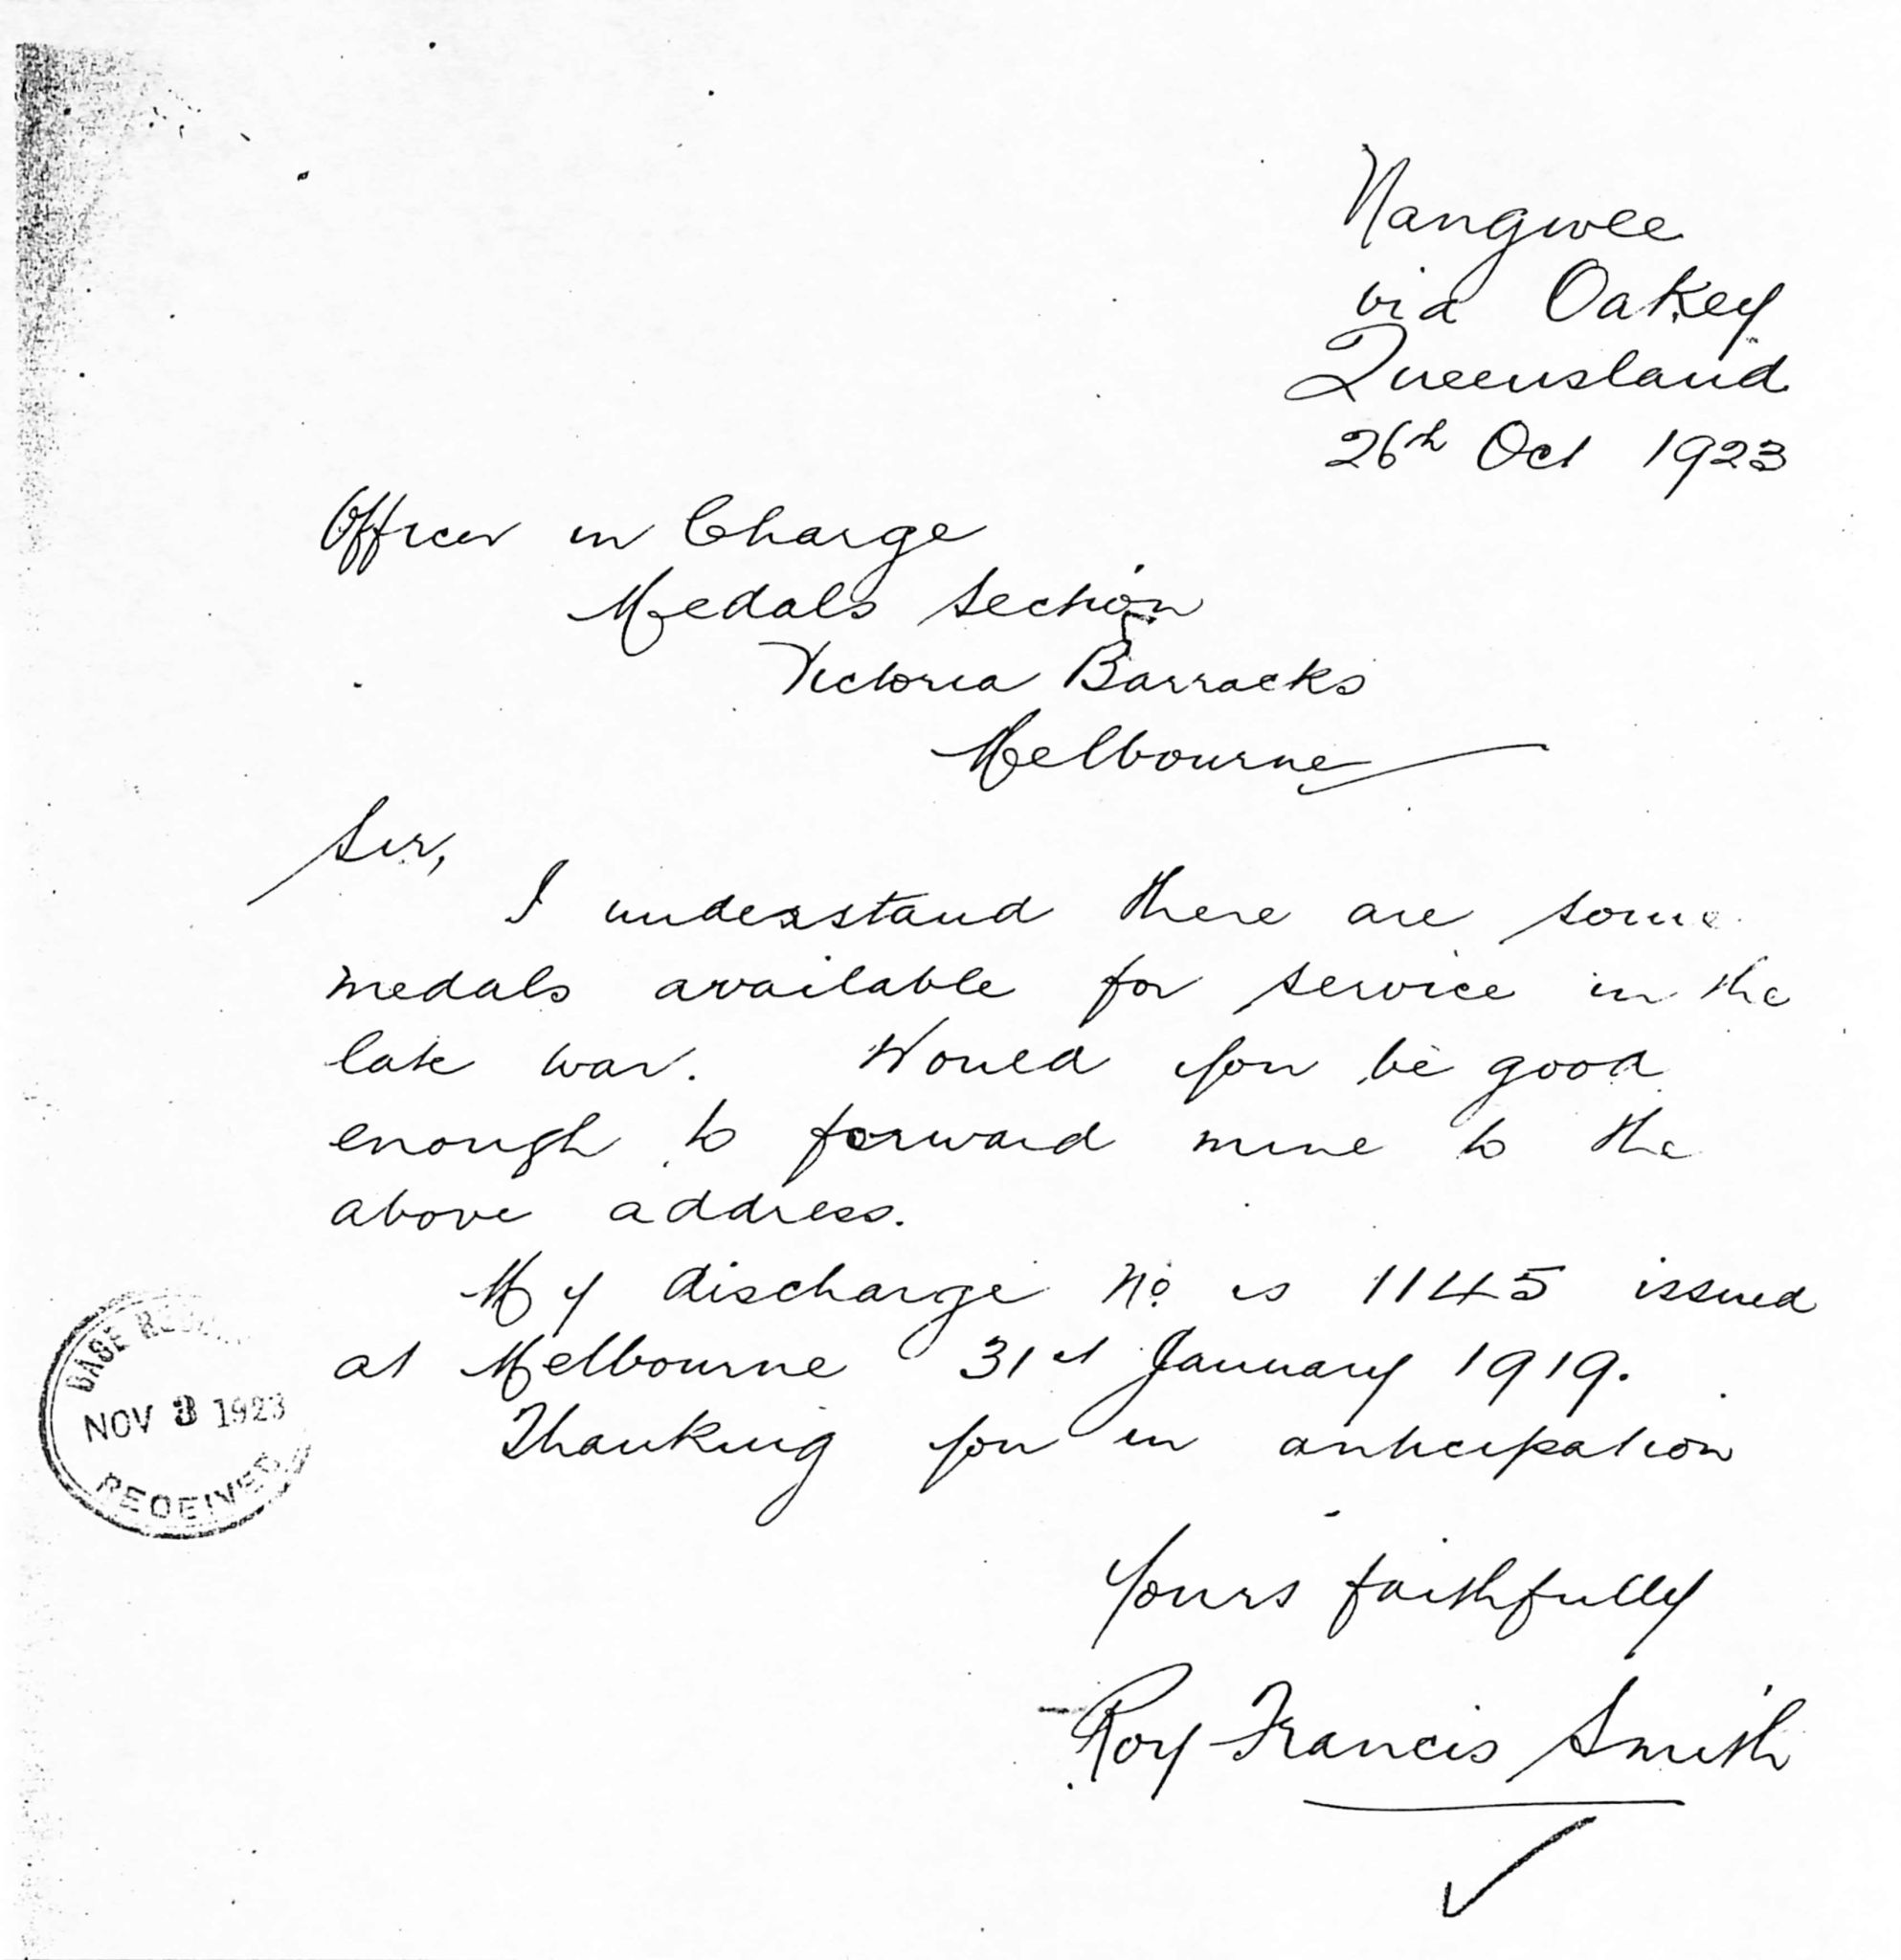 Nangwee
via Oakey
Queensland
26th Oct 1923
Officer in Charge
Medals Section
Victoria Barracks
Melbourne
Sir,
I understand there are some
medals available for service in the
late war. Would you be good
enough to forward mine to the
above address.
My discharge No. is 1145 issued
at Melbourne 31st January 1919.
Thanking you in anticipation
Yours faithfully
Roy Francis Smith
BASE
NOV 3 1923
RECEIVED